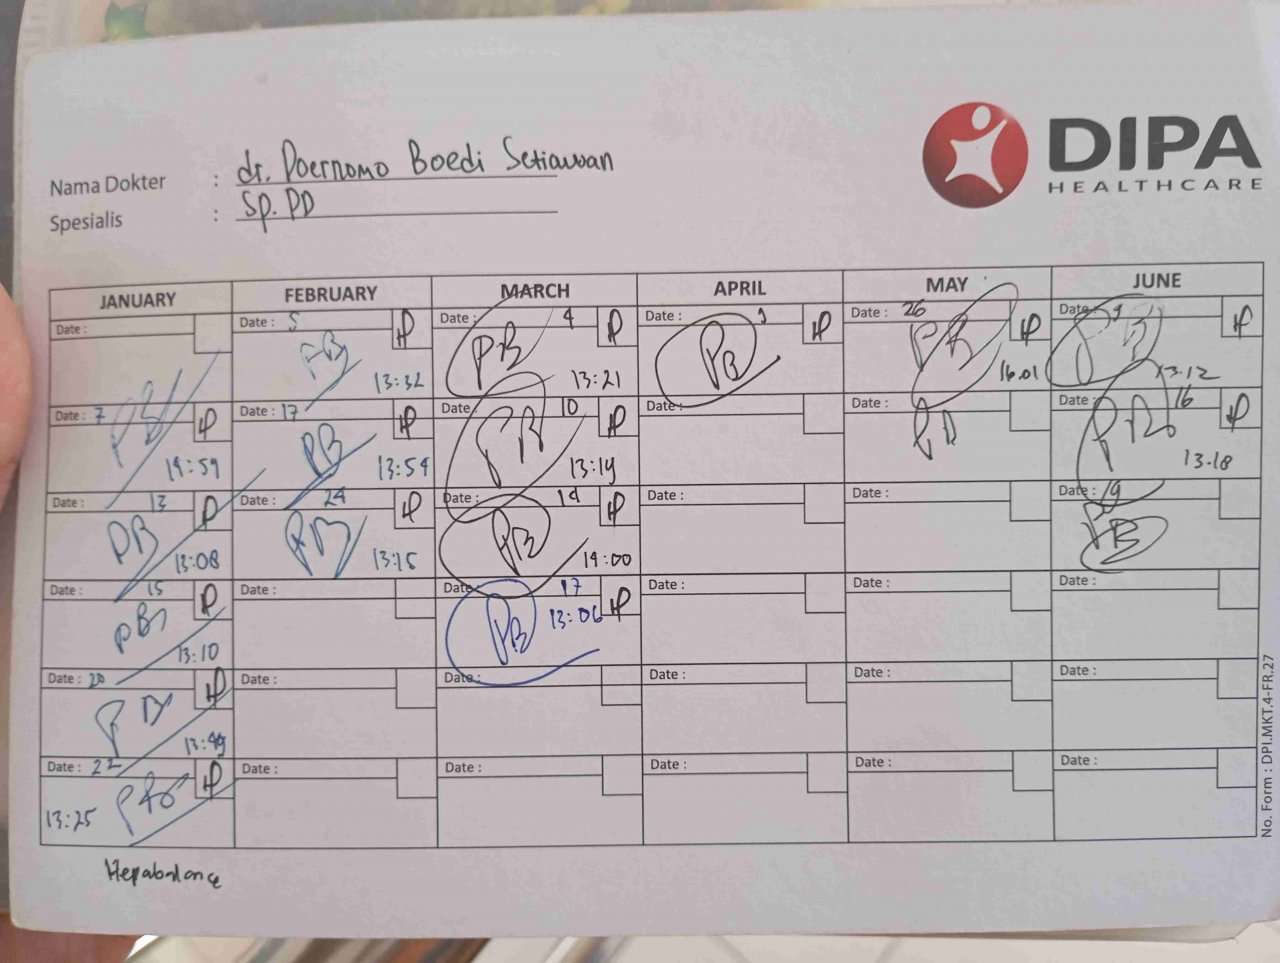 DIPA
HEALTHCARE
Nama Dokter : dr. Poernomo Boedi Setiawan
Spesialis : Sp. PD
JANUARY FEBRUARY MARCH APRIL MAY JUNE
Date : Date : 5 Date : 4 Date : Date : 26 Date :
PB PB PB PB PB
13:32 13:21 16.01 13.12
Date : 7 Date : 17 Date : 10 Date : Date : Date : 16
PB PB
14:59 13:54 13:19 13.18
Date : 13 Date : 24 Date : 14 Date : Date : Date : 19
PB PB PB PB
13:08 13:15 14:00
Date : 15 Date : Date : 17 Date : Date : Date :
PB PB
13:10 13:06
Date : 20 Date : Date : Date : Date : Date :
13:49
Date : 22 Date : Date : Date : Date : Date :
13:25
Hepabalance
No. Form : DPI.MKT.4-FR.27